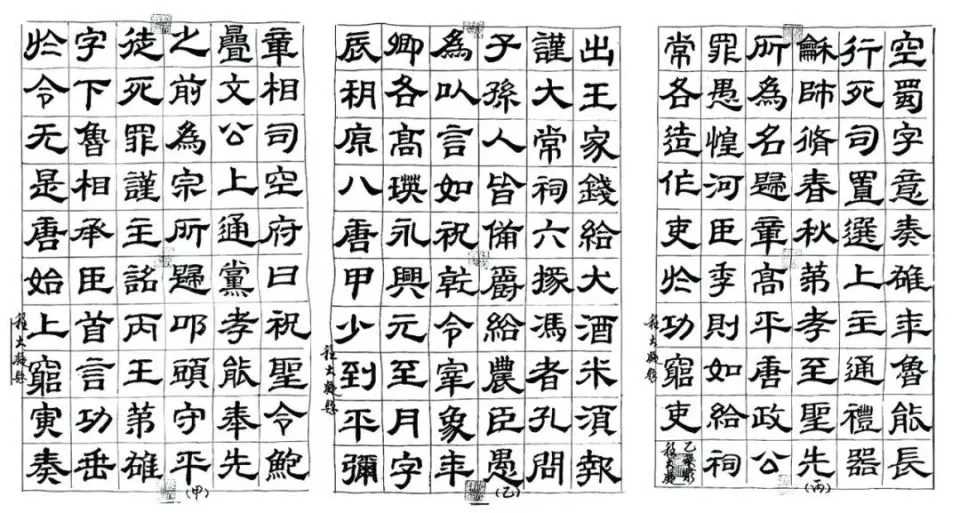 章相司空府曰祝聖令鮑
疊文公上通黨孝能奉先
之前為宗所歸叩頭守平
徒死罪謹主詺丙王第雒
字下魯相承臣首言功垂
於令无是唐始上窮寅奏
(甲)
出王家錢給犬酒米須報
謹大常祠六掾馮者孔問
子孫人皆備爵給農臣愚
為以言如祝乾令宰象年
卿各高瑛永興元至月字
辰朔原八唐甲少到平彌
(乙)
空蜀字意奏雒年魯能長
行死司置選上主通禮器
龢師脩春秋第孝至聖先
所為名歸章高平唐政公
罪愚惶河臣季則如給祠
常各造作吏於功窮吏
(丙)